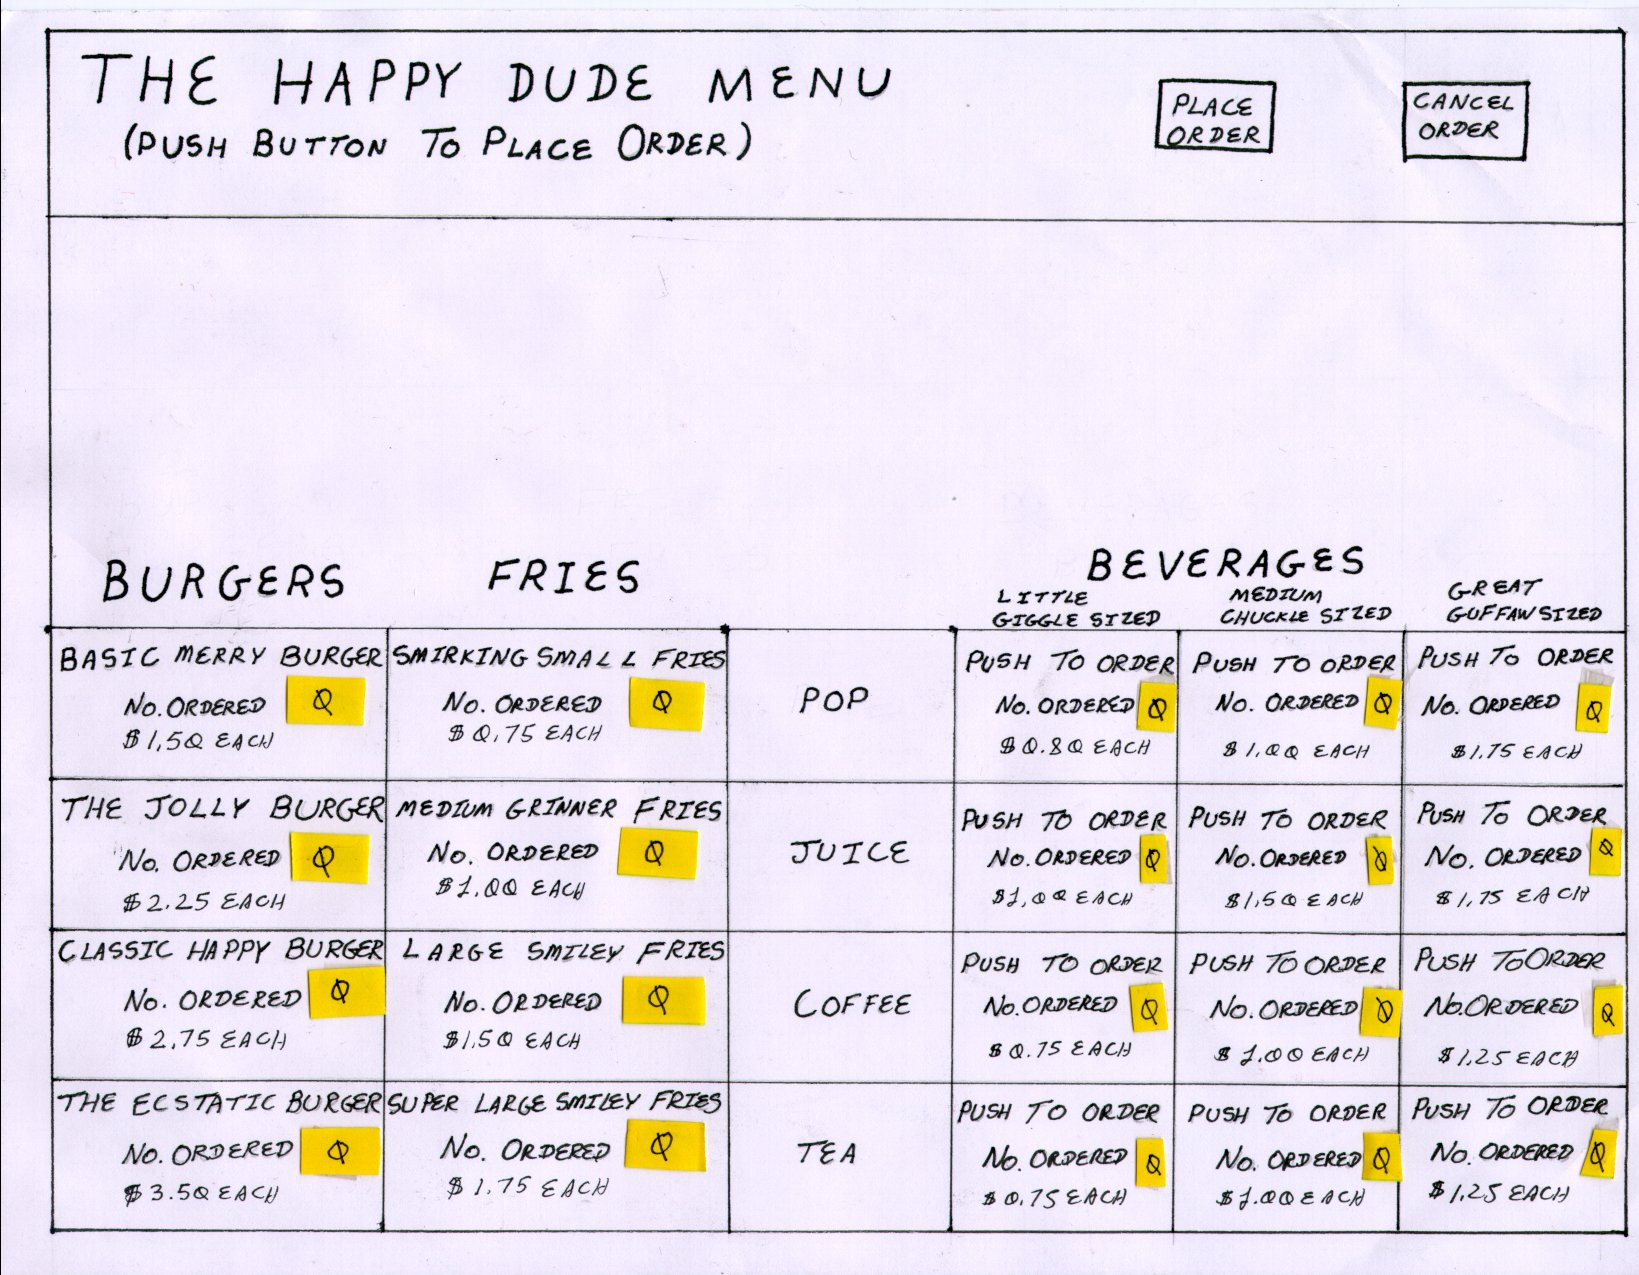 THE HAPPY DUDE MENU
(PUSH BUTTON TO PLACE ORDER)
PLACE
ORDER
CANCEL
ORDER
BURGERS
FRIES
BEVERAGES
LITTLE
GIGGLE SIZED
MEDIUM
CHUCKLE SIZED
GREAT
GUFFAW SIZED
BASIC MERRY BURGER
NO. ORDERED 0
$1.50 EACH
SMIRKING SMALL FRIES
NO. ORDERED 0
$0.75 EACH
POP
PUSH TO ORDER
NO. ORDERED 0
$0.80 EACH
PUSH TO ORDER
NO. ORDERED 0
$1.00 EACH
PUSH TO ORDER
NO. ORDERED 0
$1.75 EACH
THE JOLLY BURGER
NO. ORDERED 0
$2.25 EACH
MEDIUM GRINNER FRIES
NO. ORDERED 0
$1.00 EACH
JUICE
PUSH TO ORDER
NO. ORDERED 0
$1.00 EACH
PUSH TO ORDER
NO. ORDERED 0
$1.50 EACH
PUSH TO ORDER
NO. ORDERED 0
$1.75 EACH
CLASSIC HAPPY BURGER
NO. ORDERED 0
$2.75 EACH
LARGE SMILEY FRIES
NO. ORDERED 0
$1.50 EACH
COFFEE
PUSH TO ORDER
NO. ORDERED 0
$0.75 EACH
PUSH TO ORDER
NO. ORDERED 0
$1.00 EACH
PUSH TO ORDER
NO. ORDERED 0
$1.25 EACH
THE ECSTATIC BURGER
NO. ORDERED 0
$3.50 EACH
SUPER LARGE SMILEY FRIES
NO. ORDERED 0
$1.75 EACH
TEA
PUSH TO ORDER
NO. ORDERED 0
$0.75 EACH
PUSH TO ORDER
NO. ORDERED 0
$1.00 EACH
PUSH TO ORDER
NO. ORDERED 0
$1.25 EACH